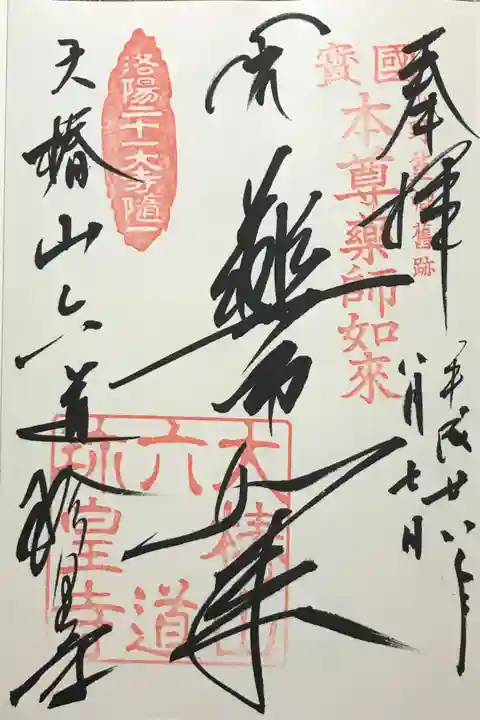 奉拝
平成廿八年
八月七日
國寶
本尊薬師如來
舊跡
薬師如来
洛陽二十一大寺随一
大椿山六道珍皇寺
大椿山六道珍皇寺